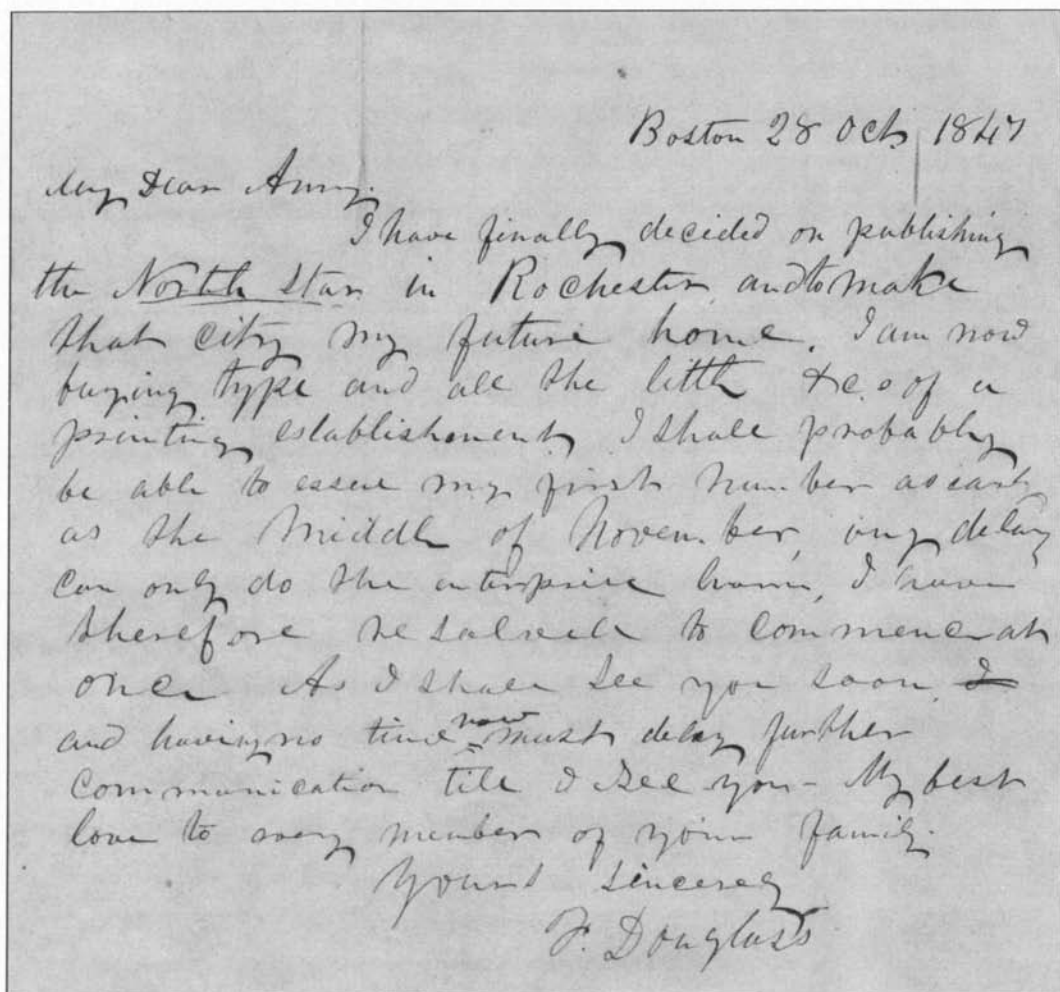 Boston 28 Oct 1847
My Dear Amy.
I have finally decided on publishing
the North Star in Rochester and to make
that city my future home. I am now
buying type and all the little &c.s of a
printing establishment. I shall probably
be able to issue my first number as early
as the middle of November, any delay
can only do the enterprise harm, I have
therefore resolved to commence at
once. As I shall see you soon I
and having no time now must delay further
communication till I see you – My best
love to every member of your family.
Yours sincerely
F. Douglass